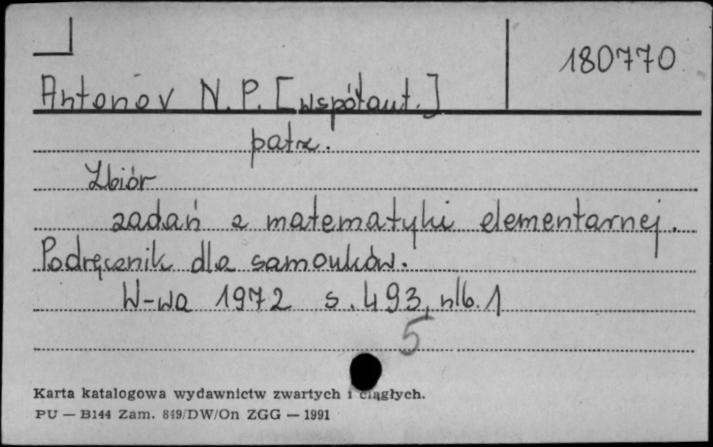 180770
Antonov N. P. [współaut.]
patrz.
Zbiór
zadań z matematyki elementarnej.
Podręcznik dla samouków.
W-wa 1972 s. 493, nlb. 1
5
Karta katalogowa wydawnictw zwartych i ciągłych.
PU — B144 Zam. 849/DW/On ZGG — 1991